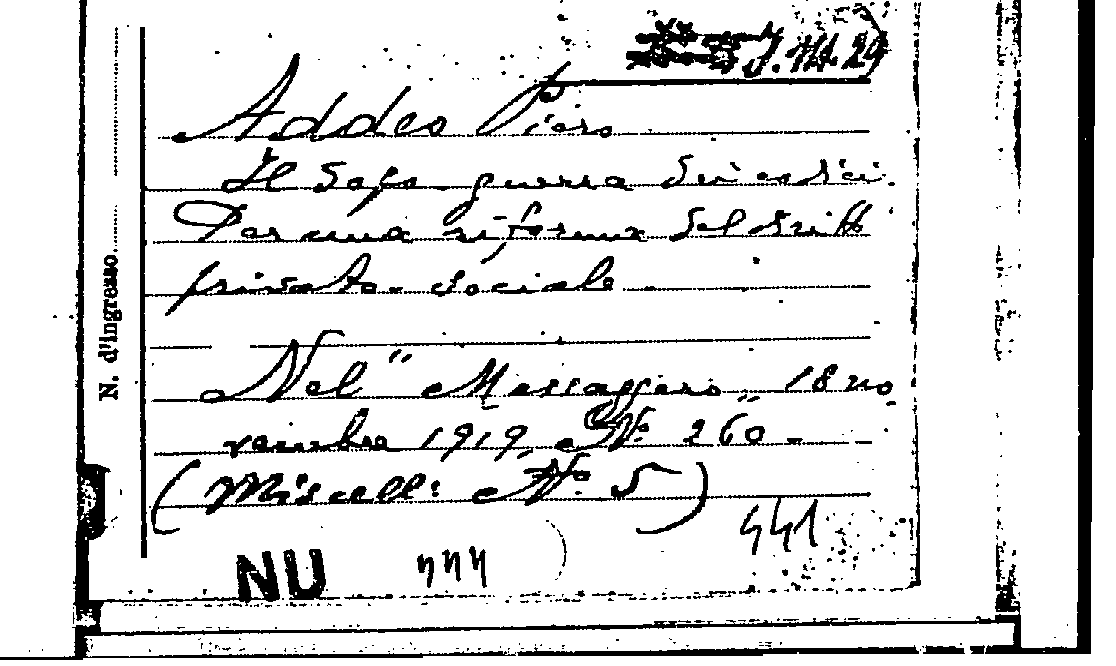 J.VII.29
Addeo Piero
Il dopo-guerra dei codici.
Per una riforma del diritto
privato-sociale
Nel "Messaggero" 18 no
vembre 1919, N.º 260-
(Miscell: N.º 5)
441
NU
N. d'ingresso